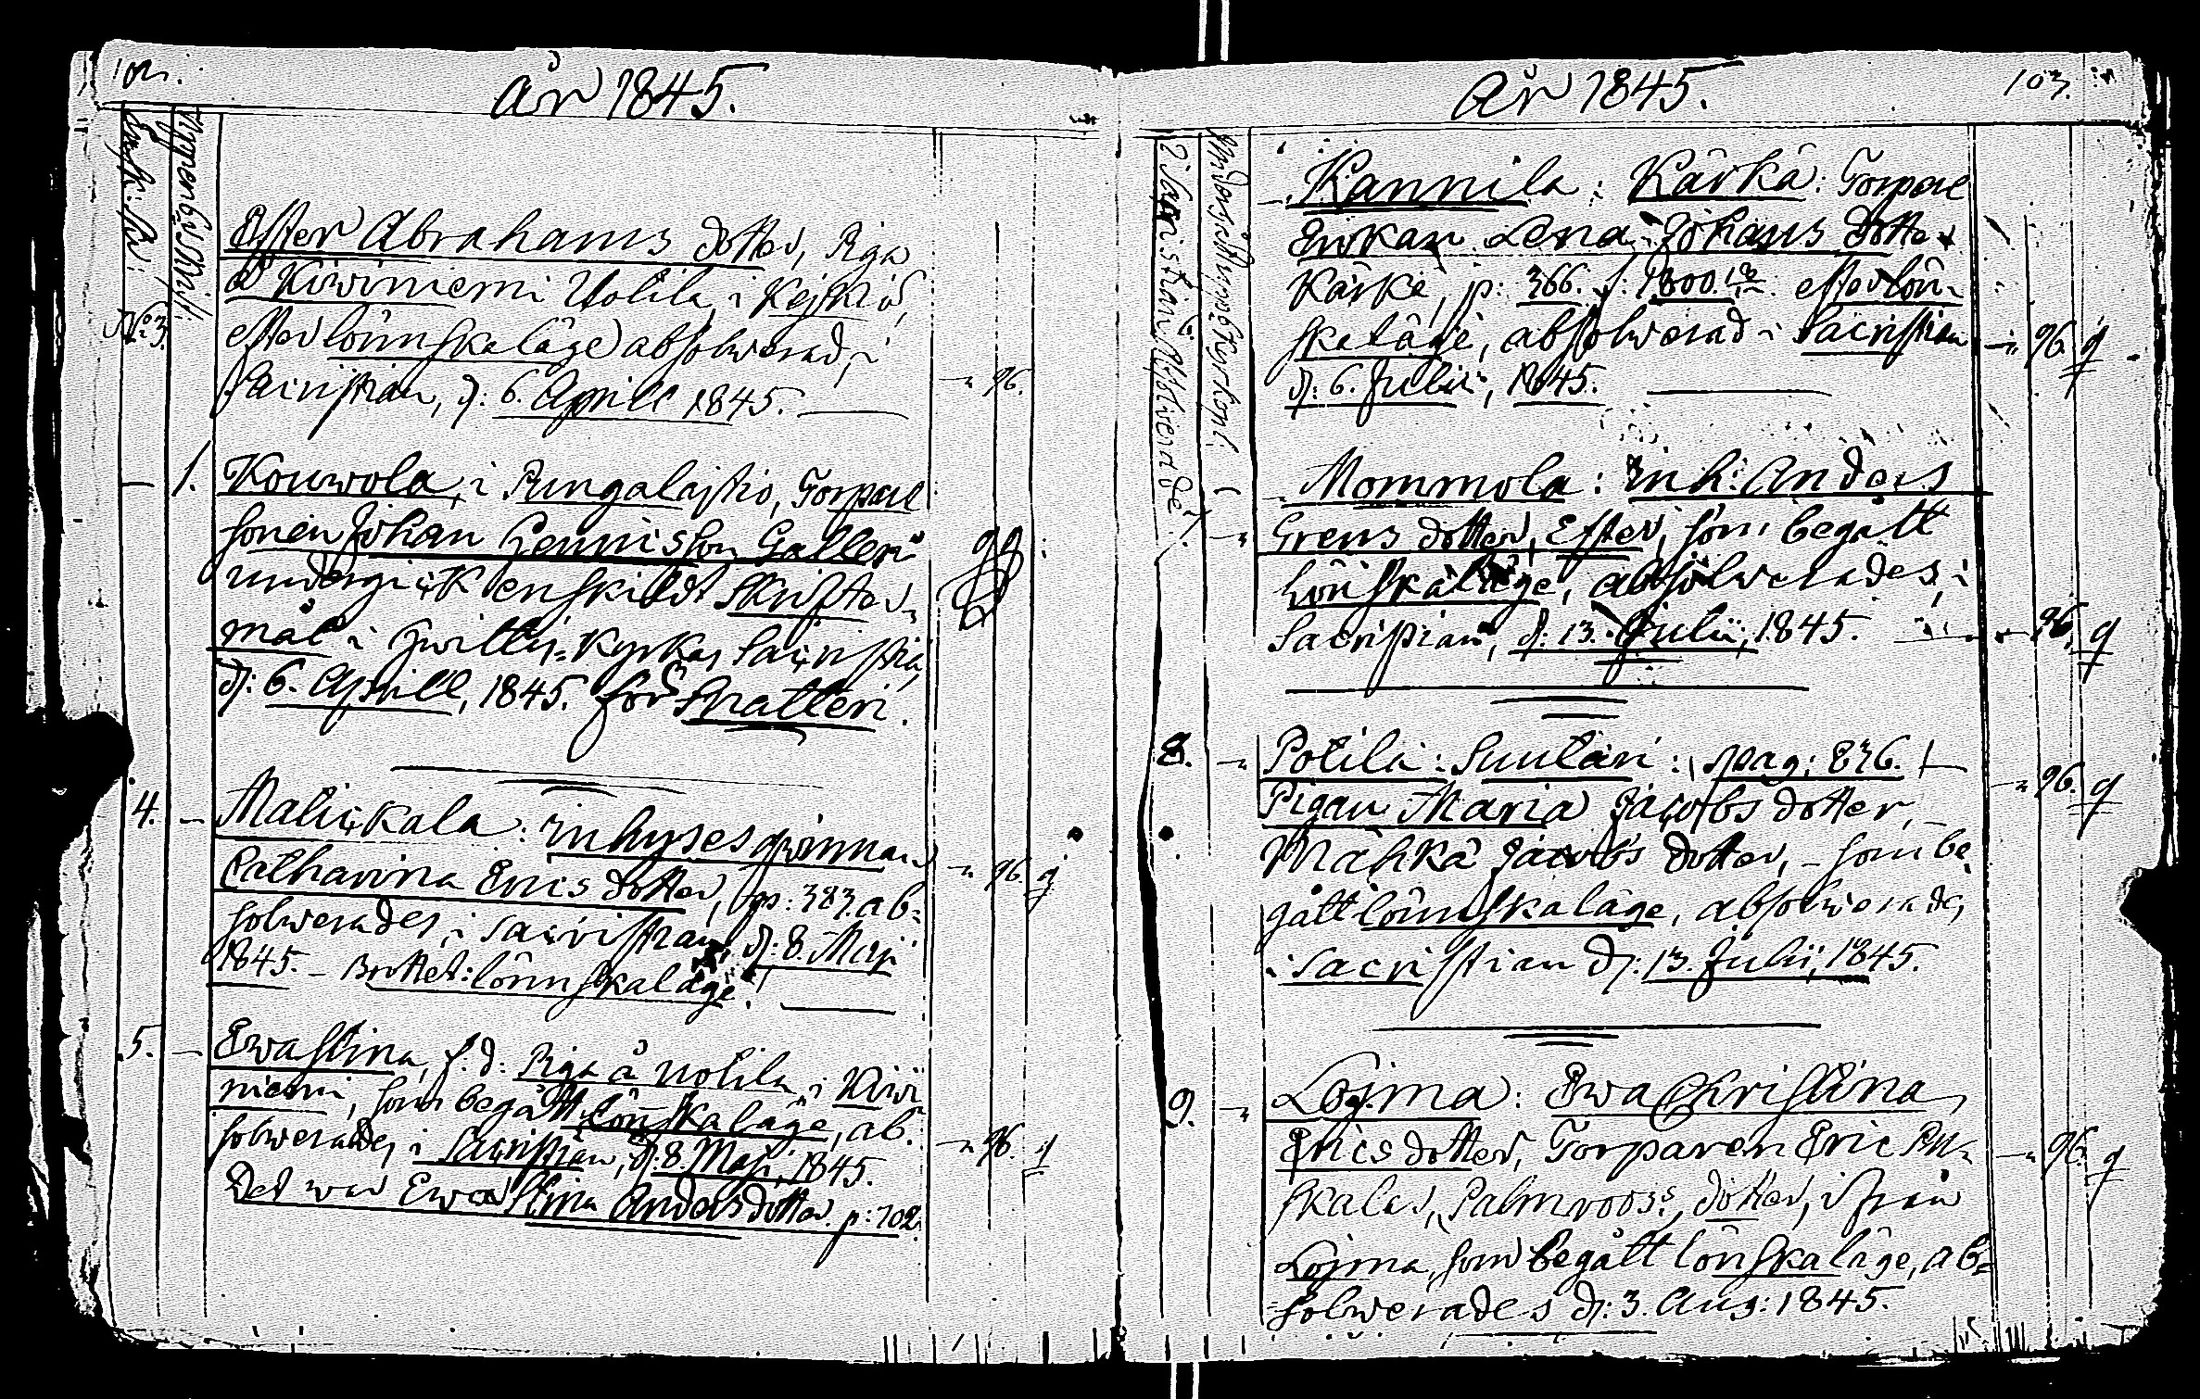 102.
År 1845.
Uppenb. Skrift.
Ensk: Skr:
No 3.
Ester Abrahams dotter, Piga
å Kiviniemi Uotila, i Kejkiö,
efter lönnskaläge absolwerad, i
Sacristian, d: 6. Aprill 1845.
96.
1. Kouwola, i Pungalajtio, Torpare
sonen Johan Hennisson Galleri
undergick enskildt Skrifter-
mål i Hwittis-Kyrkas Sacristia,
d: 6. Aprill, 1845. för Snatteri.
4. Malickala: Inhyses qwinnan
Catharina Erics dotter, p: 383. ab-
solwerades, i Sacristian, d: 8. Maji
1845. - Brottet: lönnskaläge.
96. g
5. Ewa Stina, f. d: Piga å Uotila, i Kiwi
niemi, som begått lönskaläge, ab-
solwerades i Sacristian, d: 8. Maji, 1845.
Det war Ewa Stina Andersdotter. p: 702.
96. g
103.
År 1845.
I Sacristian Absolwerade
Kannila: Kärkä: Torpare
Enkan Lena Johans dotter
Kärke, p: 366. f: 1800. efter lön-
skaläge, absolwerad i Sacristian
d: 6. Julii, 1845.
96. g
Mommola: Inh: Anders
Grens dotter, Ester, som begått
lönskaläge, absolwerades, i
Sacristian, d: 13. Julii, 1845.
96. g
8. Potila: Suutari: pag: 836.
Pigan Maria Jacobs dotter,
Mähkä Jacobs dotter, - som be-
gått lönnskaläge, absolwerades
i Sacristian d: 13. Julii, 1845.
96. g
9. Lojma: Ewa Christina
Ericsdotter, Torparen Eric Pus-
kalas, Palmroos's, dotter, ifrån
Lojma, som begått lönskaläge, ab-
solwerades d: 3. Aug: 1845.
96. g